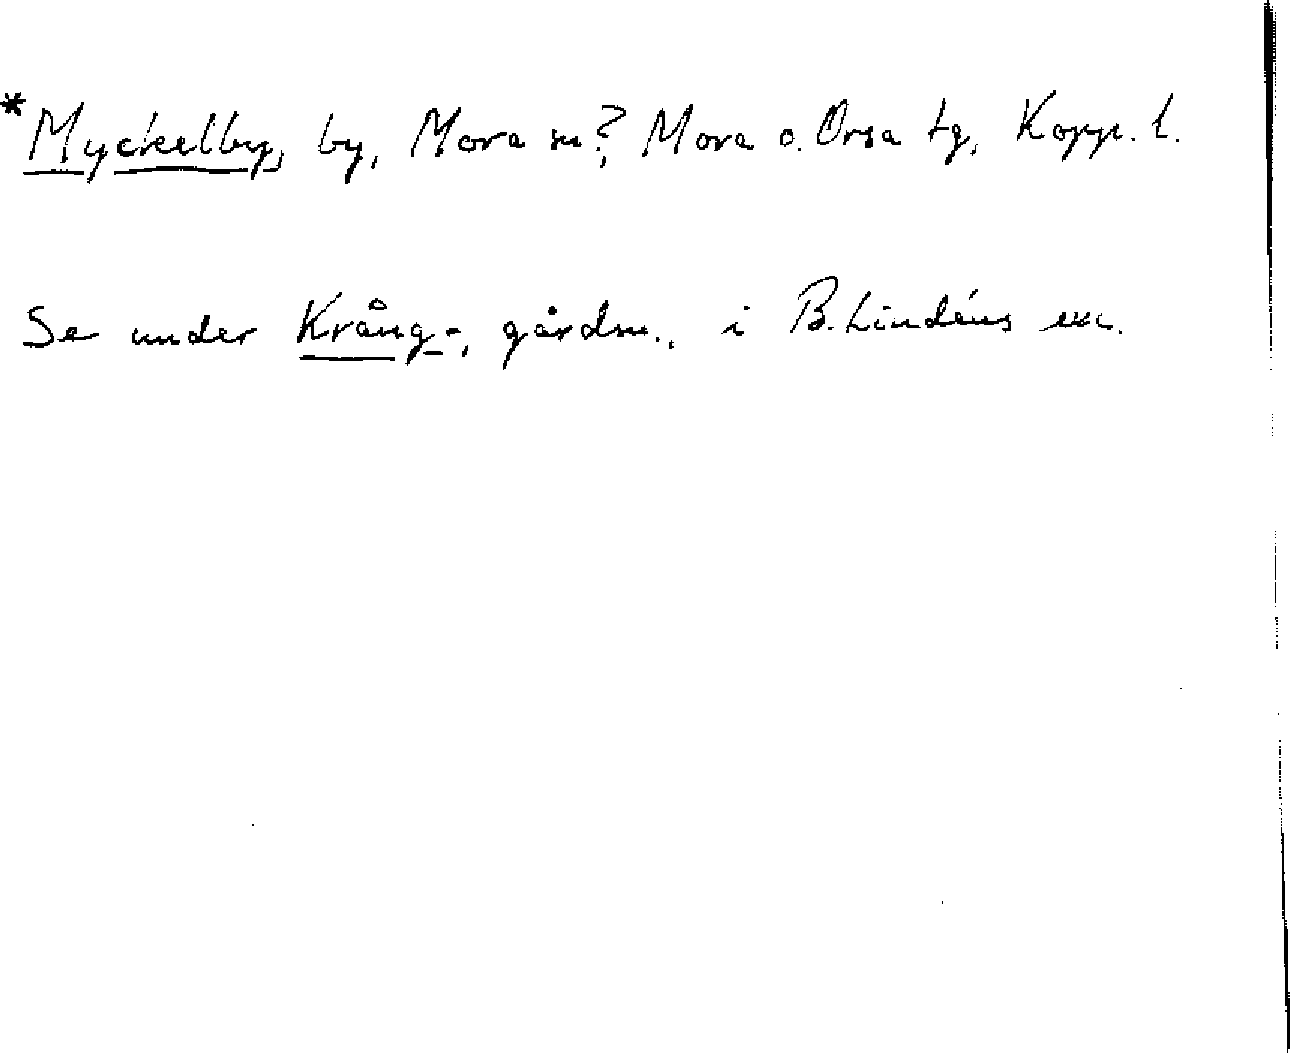 *Myckelby, by, Mora sn?, Mora o. Orsa tg, Kopp. l.
Se under Krång-, gårdsn., i B. Lindéns exc.